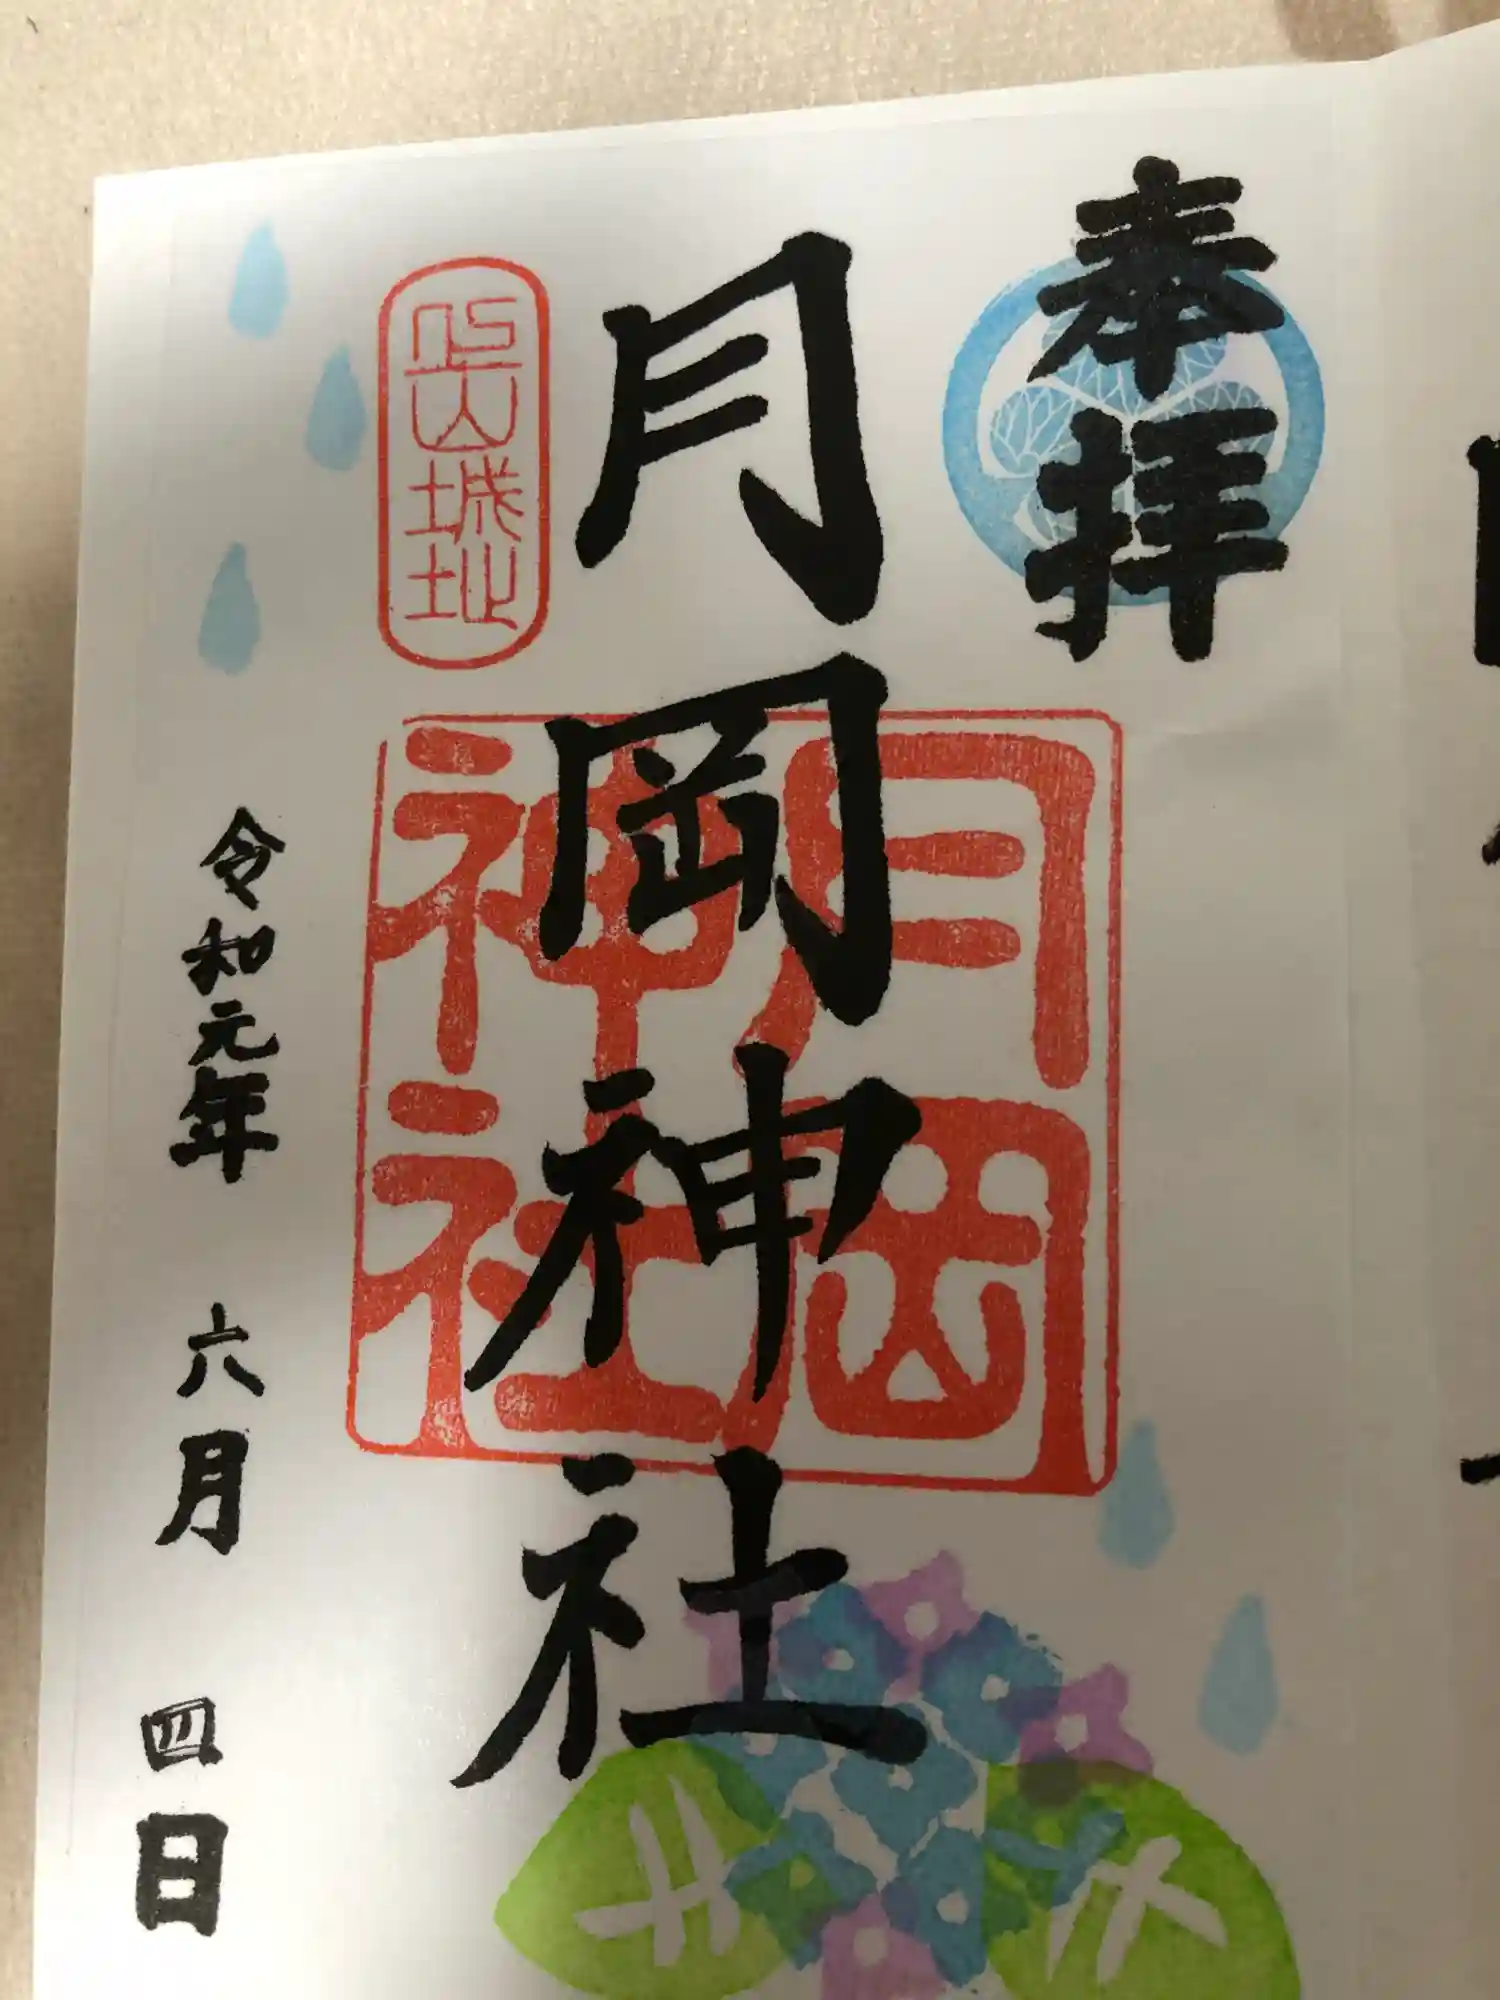 奉拝
月岡神社
月岡
神社
上山城址
令和元年 六月 四日